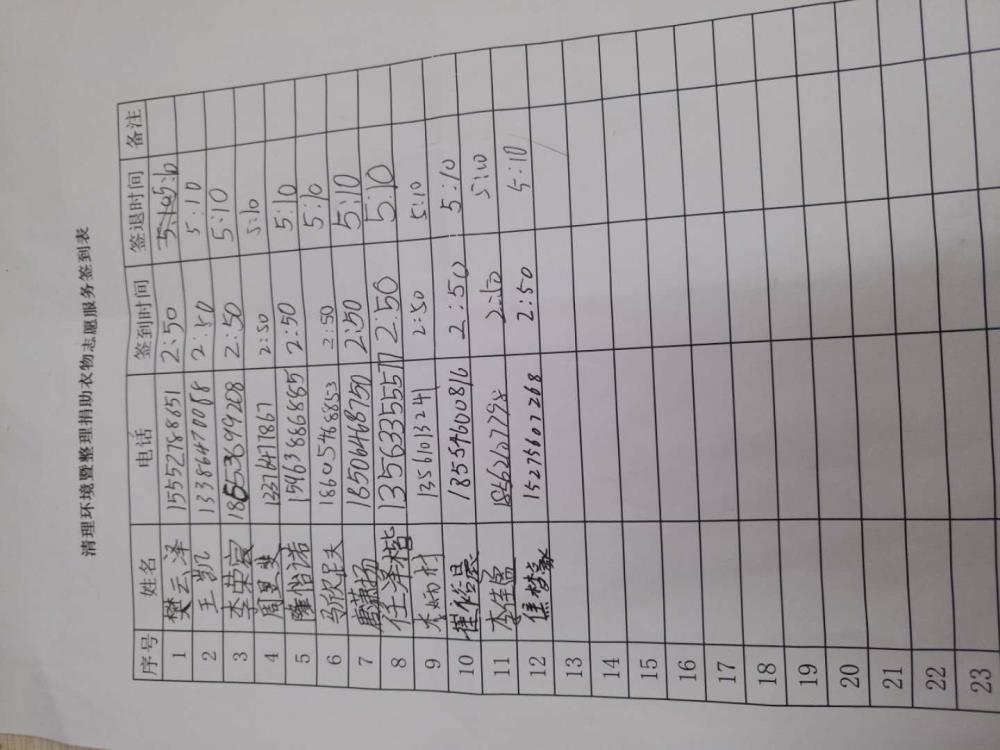 清理环境暨整理捐助衣物志愿服务签到表
序号 姓名 电话 签到时间 签退时间 备注
1 樊云泽 15552788651 2:50 5:10
2 王凯 13386470088 2:50 5:10
3 李荣宸 18653699208 2:50 5:10
4 周里斐 13376471867 2:50 5:10
5 隆怡诺 15963886885 2:50 5:10
6 马欣跃 18605468853 2:50 5:10
7 唐萧扬 18506468750 2:50 5:10
8 任泽楷 13563355577 2:50 5:10
9 13561013241 2:50 5:10
10 崔裕晨 18554600816 2:50 5:10
11 李佳盈 18562107798 2:50 5:10
12 焦梦家 15275607268 2:50 5:10
13
14
15
16
17
18
19
20
21
22
23